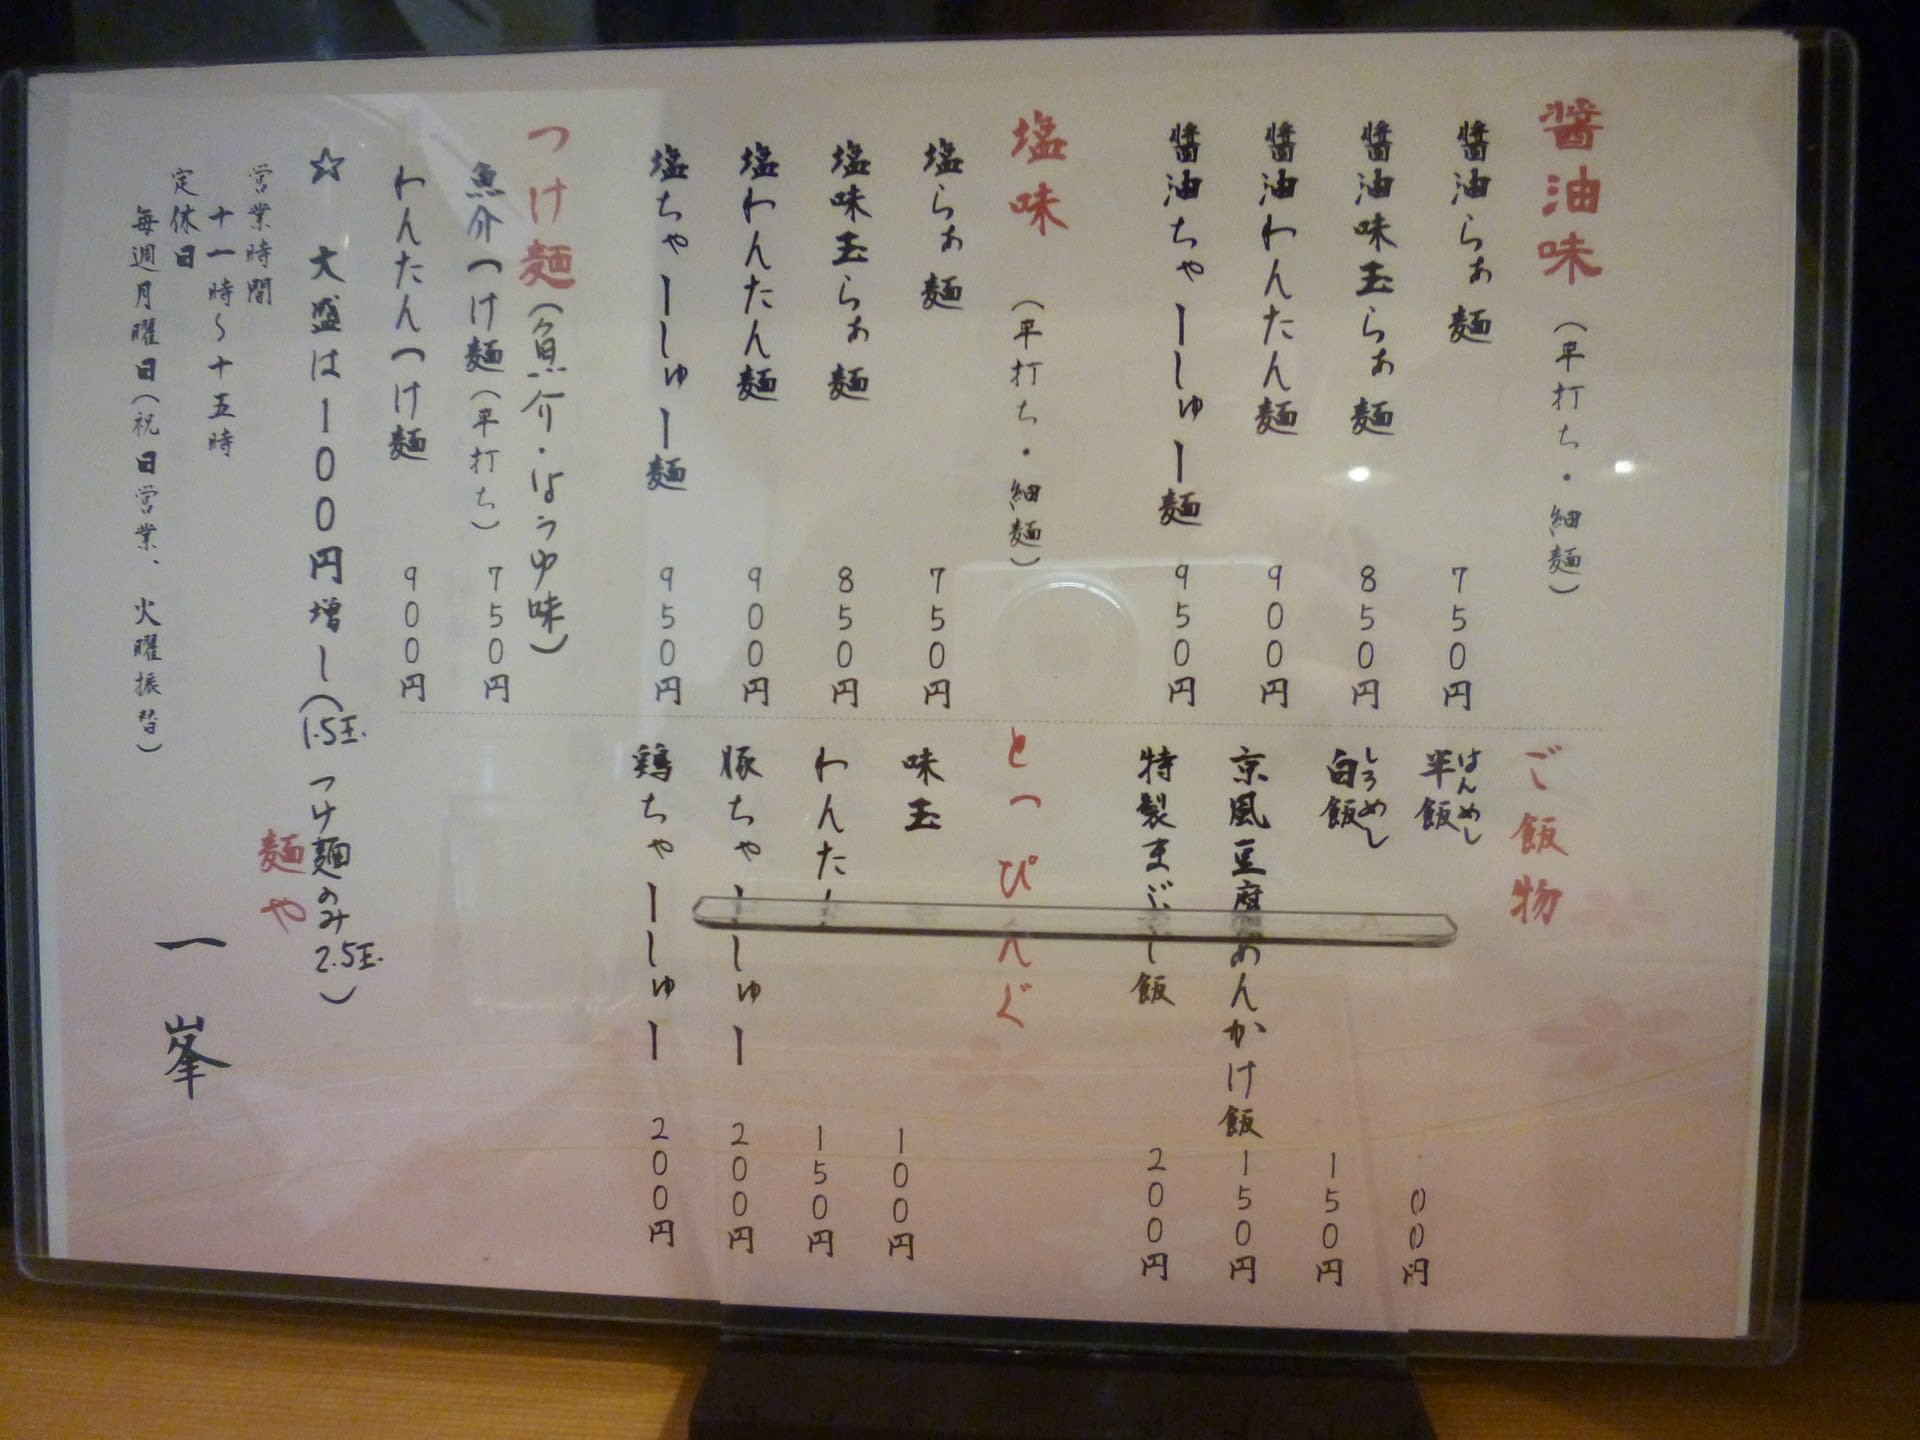 醤油味（平打ち・細麺）
醤油らぁ麺 750円
醤油味玉らぁ麺 850円
醤油わんたん麺 900円
醤油ちゃーしゅー麺 950円
塩味（平打ち・細麺）
塩らぁ麺 750円
塩味玉らぁ麺 850円
塩わんたん麺 900円
塩ちゃーしゅー麺 950円
つけ麺（魚介・しょうゆ味）
魚介つけ麺（平打ち） 750円
わんたんつけ麺 900円
ご飯物
半飯 はんめし 00円
白飯 しろめし 150円
京風豆腐あんかけ飯 150円
特製まぶし飯 200円
とっぴんぐ
味玉 100円
わんたん 150円
豚ちゃーしゅー 200円
鶏ちゃーしゅー 200円
☆ 大盛は100円増し（1.5玉. つけ麺のみ2.5玉.）
営業時間
十一時〜十五時
定休日
毎週月曜日（祝日営業、火曜振替）
麺や
一峯